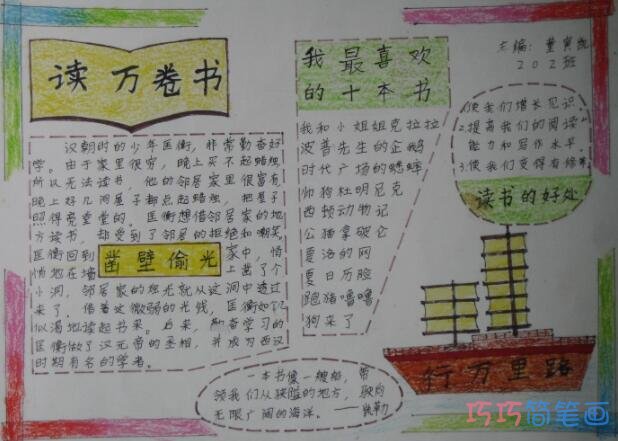 读万卷书
汉朝时的少年匡衡，非常勤奋好
学。由于家里很穷，晚上买不起蜡烛
所以无法读书，他的邻居家里很富有
晚上好几间屋子都点起蜡烛，把屋子
照得亮堂堂的。匡衡想借邻居家的地
方读书，却受到了邻居的拒绝和嘲笑
匡衡回到
家中，悄
悄地在墙
上凿了个
凿壁偷光
小洞，邻居家的烛光就从这洞中透过
来了。借着这微弱的光线，匡衡如饥
似渴地读起书来。后来，勤奋学习的
匡衡做了汉元帝的丞相，并成为西汉
时期有名的学者。
我最喜欢
的十本书
我和小姐姐克拉拉
波普先生的企鹅
时代广场的蟋蟀
帅狗杜明尼克
西顿动物记
公猪拿破仑
夏洛的网
夏日历险
跑猪噜噜
狗来了
主编：董
202班
1.使我们增长见识
2.提高我们的阅读
能力和写作水平
3.使我们变得有修养
读书的好处
行万里路
一本书像一艘船，带
领我们从狭隘的地方，驶向
无限广阔的海洋。——凯勒
巧巧简笔画